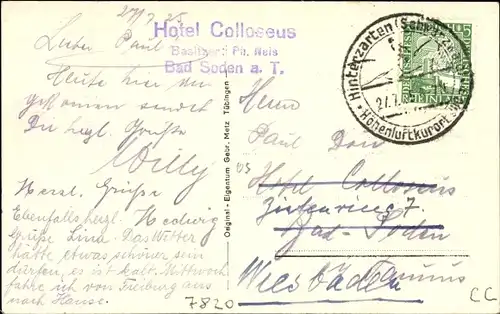 27/7 25
Hotel Colloseus
Besitzer: Ph. Reis
Bad Soden a. T.
Lieber Paul
Heute hier an
gekommen sendet
Dir herzl. Grüße
Willy
Herzl. Grüße
Hedwig
Ebenfalls herzl.
Grüße Lina. Das Wetter
hätte etwas schöner sein
dürfen, es ist kalt. Mittwoch
fahre ich von Freiburg aus
nach Hause.
7820
Original - Eigentum Gebr. Metz Tübingen
Hinterzarten (Schwarzwald)
Höhenluftkurort
27.7.
Herrn
Paul Dorn
Hotel Colloseus
7
Bad-Soden
Taunus
Wiesbaden
CC